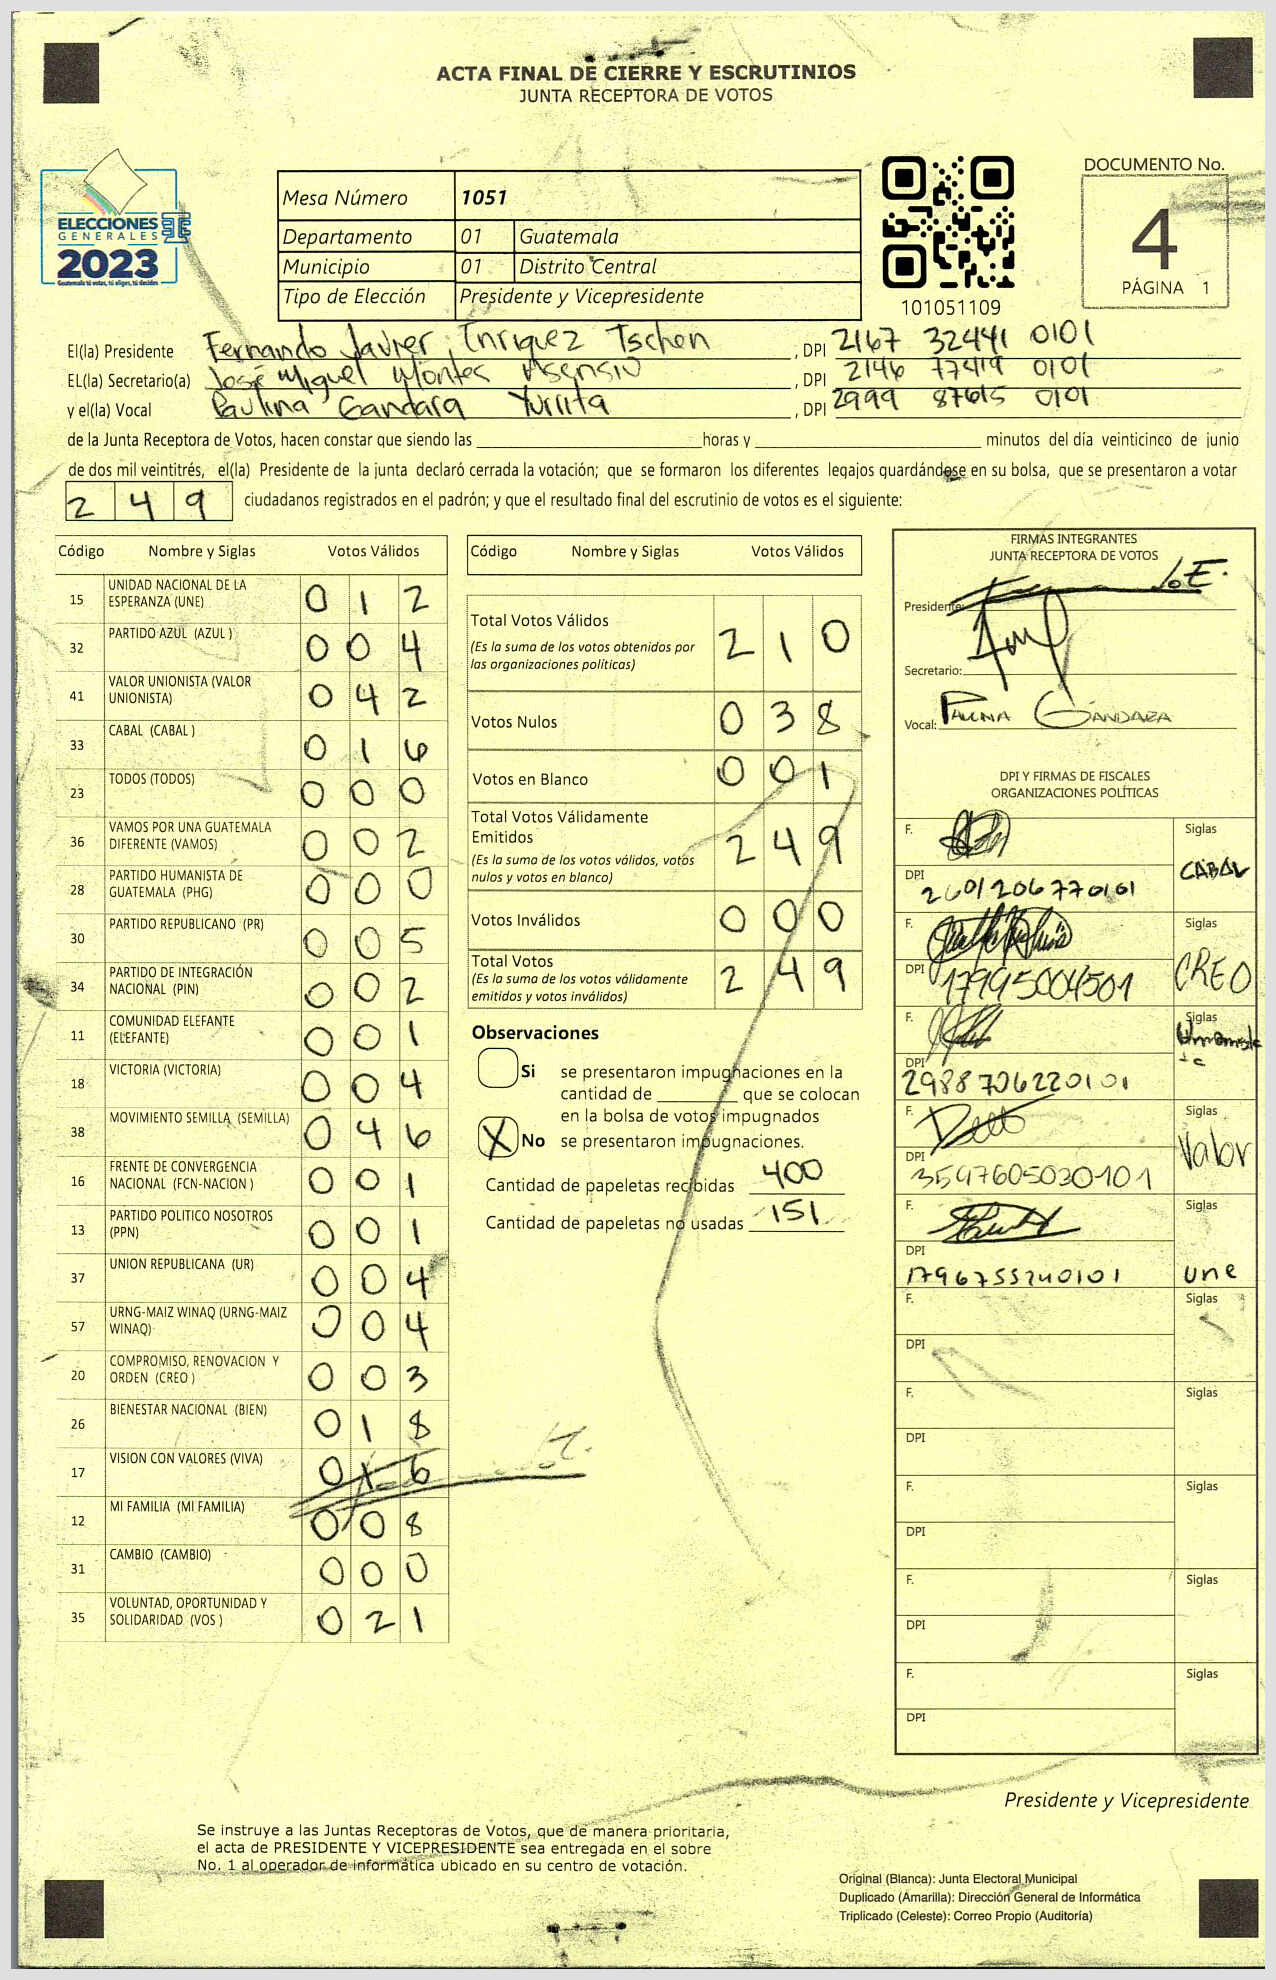 ACTA FINAL DE CIERRE Y ESCRUTINIOS
JUNTA RECEPTORA DE VOTOS
ELECCIONES
GENERALES
2023
Guatemala tú votas, tú eliges, tú decides
Mesa Número 1051
Departamento 01 Guatemala
Municipio 01 Distrito Central
Tipo de Elección Presidente y Vicepresidente
101051109
DOCUMENTO No.
4
PÁGINA 1
El(la) Presidente Fernando Javier Inriquez Tschen , DPI 2167 32441 0101
EL(la) Secretario(a) José Miguel Montes Asensio , DPI 2146 77419 0101
y el(la) Vocal Paulina Gandara Yurrita , DPI 2999 87615 0101
de la Junta Receptora de Votos, hacen constar que siendo las horas y minutos del día veinticinco de junio
de dos mil veintitrés, el(la) Presidente de la junta declaró cerrada la votación; que se formaron los diferentes legajos guardándose en su bolsa, que se presentaron a votar
2 4 9 ciudadanos registrados en el padrón; y que el resultado final del escrutinio de votos es el siguiente:
Código Nombre y Siglas Votos Válidos
15 UNIDAD NACIONAL DE LA ESPERANZA (UNE) 0 1 2
32 PARTIDO AZUL (AZUL ) 0 0 4
41 VALOR UNIONISTA (VALOR UNIONISTA) 0 4 2
33 CABAL (CABAL ) 0 1 6
23 TODOS (TODOS) 0 0 0
36 VAMOS POR UNA GUATEMALA DIFERENTE (VAMOS) 0 0 2
28 PARTIDO HUMANISTA DE GUATEMALA (PHG) 0 0 0
30 PARTIDO REPUBLICANO (PR) 0 0 5
34 PARTIDO DE INTEGRACIÓN NACIONAL (PIN) 0 0 2
11 COMUNIDAD ELEFANTE (ELEFANTE) 0 0 1
18 VICTORIA (VICTORIA) 0 0 4
38 MOVIMIENTO SEMILLA (SEMILLA) 0 4 6
16 FRENTE DE CONVERGENCIA NACIONAL (FCN-NACION ) 0 0 1
13 PARTIDO POLITICO NOSOTROS (PPN) 0 0 1
37 UNION REPUBLICANA (UR) 0 0 4
57 URNG-MAIZ WINAQ (URNG-MAIZ WINAQ) 0 0 4
20 COMPROMISO, RENOVACION Y ORDEN (CREO ) 0 0 3
26 BIENESTAR NACIONAL (BIEN) 0 1 8
17 VISION CON VALORES (VIVA) 0 1 6
12 MI FAMILIA (MI FAMILIA) 0 0 8
31 CAMBIO (CAMBIO) 0 0 0
35 VOLUNTAD, OPORTUNIDAD Y SOLIDARIDAD (VOS ) 0 2 1
Código Nombre y Siglas Votos Válidos
Total Votos Válidos 2 1 0
(Es la suma de los votos obtenidos por
las organizaciones políticas)
Votos Nulos 0 3 8
Votos en Blanco 0 0 1
Total Votos Válidamente
Emitidos 2 4 9
(Es la suma de los votos válidos, votos
nulos y votos en blanco)
Votos Inválidos 0 0 0
Total Votos 2 4 9
(Es la suma de los votos válidamente
emitidos y votos inválidos)
Observaciones
Si se presentaron impugnaciones en la
cantidad de que se colocan
en la bolsa de votos impugnados
X No se presentaron impugnaciones.
Cantidad de papeletas recibidas 400
Cantidad de papeletas no usadas 151
FIRMAS INTEGRANTES
JUNTA RECEPTORA DE VOTOS
Presidente:
Secretario:
Vocal: Paulina Gándara
DPI Y FIRMAS DE FISCALES
ORGANIZACIONES POLÍTICAS
F. Siglas
CABAL
DPI 2601206770101
F. Siglas
CREO
DPI 17995004501
F. Siglas
DPI 2988706220101
F. Siglas
Valor
DPI 3547605030101
F. Siglas
DPI
1796755240101 une
F. Siglas
DPI
F. Siglas
DPI
F. Siglas
DPI
F. Siglas
DPI
F. Siglas
DPI
Presidente y Vicepresidente
Se instruye a las Juntas Receptoras de Votos, que de manera prioritaria,
el acta de PRESIDENTE Y VICEPRESIDENTE sea entregada en el sobre
No. 1 al operador de informática ubicado en su centro de votación.
Original (Blanca): Junta Electoral Municipal
Duplicado (Amarilla): Dirección General de Informática
Triplicado (Celeste): Correo Propio (Auditoría)